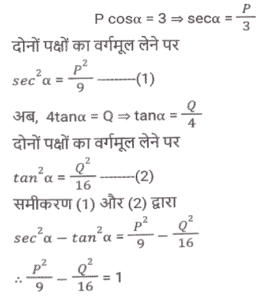 P cosα = 3 ⇒ secα = P/3
दोनों पक्षों का वर्गमूल लेने पर
sec²α = P²/9 ----------(1)
अब, 4tanα = Q ⇒ tanα = Q/4
दोनों पक्षों का वर्गमूल लेने पर
tan²α = Q²/16 --------(2)
समीकरण (1) और (2) द्वारा
sec²α − tan²α = P²/9 − Q²/16
∴ P²/9 − Q²/16 = 1